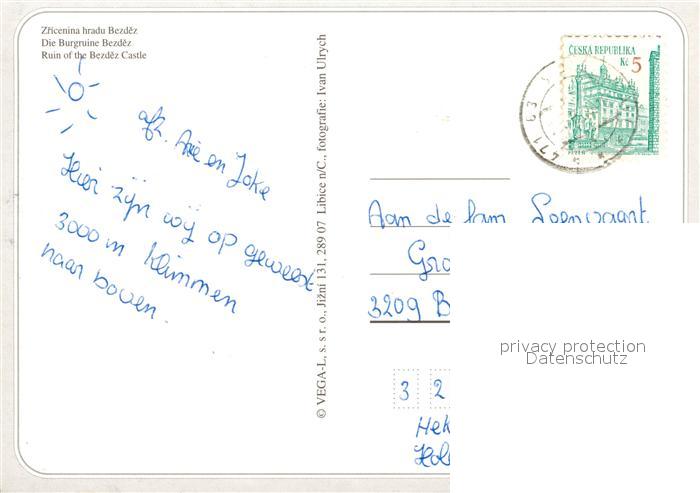 Zřícenina hradu Bezděz
Die Burgruine Bezděz
Ruin of the Bezděz Castle
afz. Arie en Joke
Hier zijn wij op geweest
3000 m klimmen
naar boven.
© VEGA-L, s. s r. o., Jižní 131, 289 07 Libice n/C., fotografie: Ivan Ulrych
ČESKÁ REPUBLIKA
Kč 5
PLZEŇ
471 63
Aan de fam
Gro
3209 B
3 2
Hek
Hol
privacy protection
Datenschutz